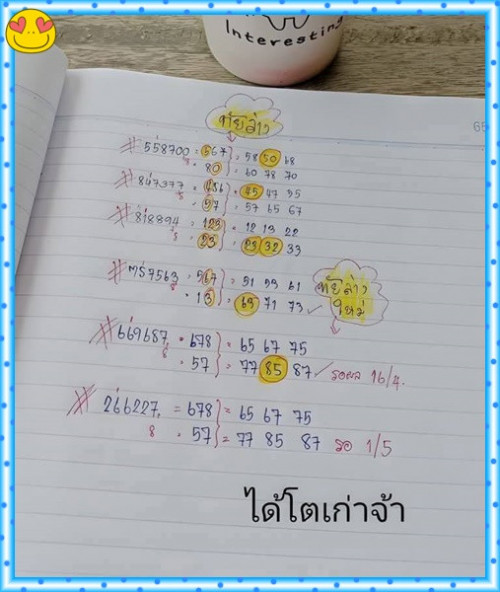 Interesting
ทัยล่าง
#558700 = 567 = 58 50 68
8 = 80 = 60 78 70
#847377 = 456 = 45 47 55
= 57 = 57 65 67
#818894 = 123 = 12 13 22
8 = 23 = 23 32 33
#757563 = 567 = 51 53 61
8 = 13 = 63 71 73 ✓
ทัยล่าง
ใหม่
#669687 = 678 = 65 67 75
8 = 57 = 77 85 87 ✓ รอผล 16/4
#266227 = 678 = 65 67 75
8 = 57 = 77 85 87 รอ 1/5
ได้โตเก่าจ้า